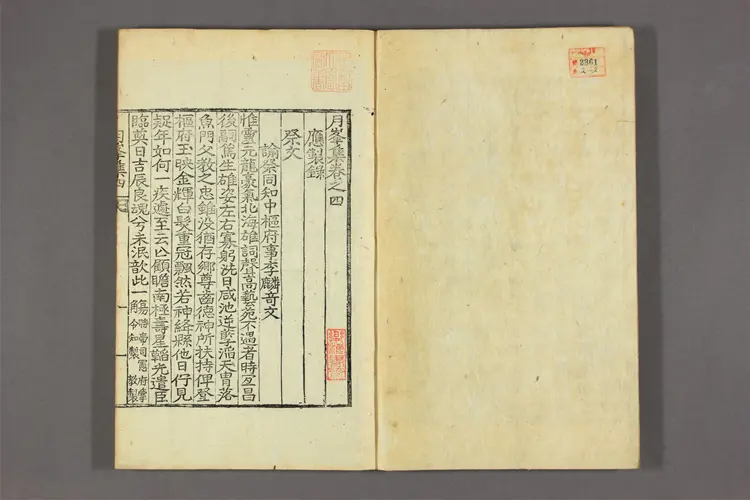 月峯集卷之四
應製錄
祭文
諭祭同知中樞府事李麟奇文
惟靈元龍豪氣北海雄詞聲高藝苑不遇者時宜昌
後嗣篤生雄姿左右寡躬洗日咸池逆孽滔天胄落
魚門父敎之忠雖没猶存鄕尊齒德神所扶持俾登
樞府玉映金輝白髮重冠飄然若神絳縣他日佇見
疑年如何一疾遽至云亡顧瞻南極壽星韜光遣臣
臨奠日吉辰良魂兮未泯歆此一
角令知製敎製
月峯集四
2361
2-2